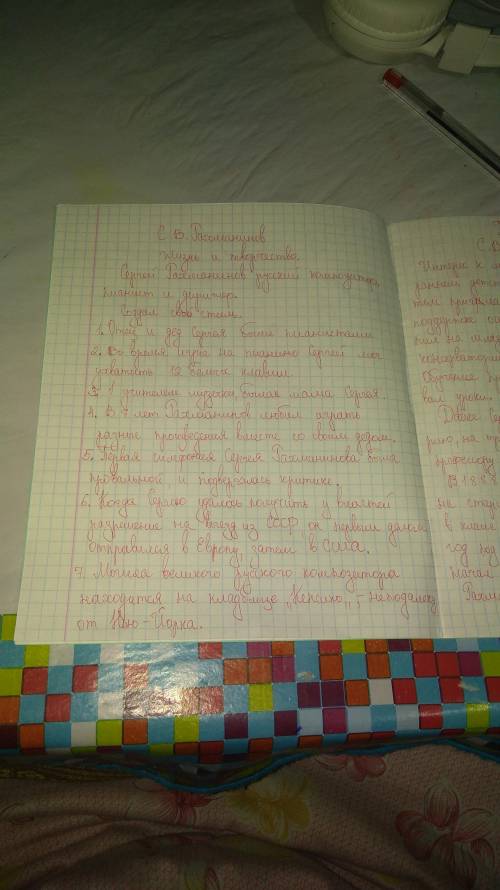 С. В. Рахманинов
жизнь и творчество.
Сергей Рахманинов русский композитор,
пианист и дирижер.
Создал свой стиль.
1. Отец и дед Сергея были пианистами
2. Во время игры на пианино Сергей мог
ухватить 12 белых клавиш.
3. 1 учителем музыки, была мама Сергея.
4. В 7 лет Рахманинов любил играть
разные произведения вместе со своим дедом.
5. Первая симфония Сергея Рахманинова была
провальной, и подверглась критике.
6. Когда Сергею удалось получить у властей
разрешение на выезд из СССР, он первым делом
отправился в Европу, затем в США.
7. Могила великого русского композитора
находится на кладбище „Кенсико", неподалеку
от Нью-Йорка.
С. В
Интерес к
раннем детс
поддержке
консерватори
Обучение пр
вал уроки.
Далее Се
профессору
В 1888
на ста
в классе
год
начал
Рахм